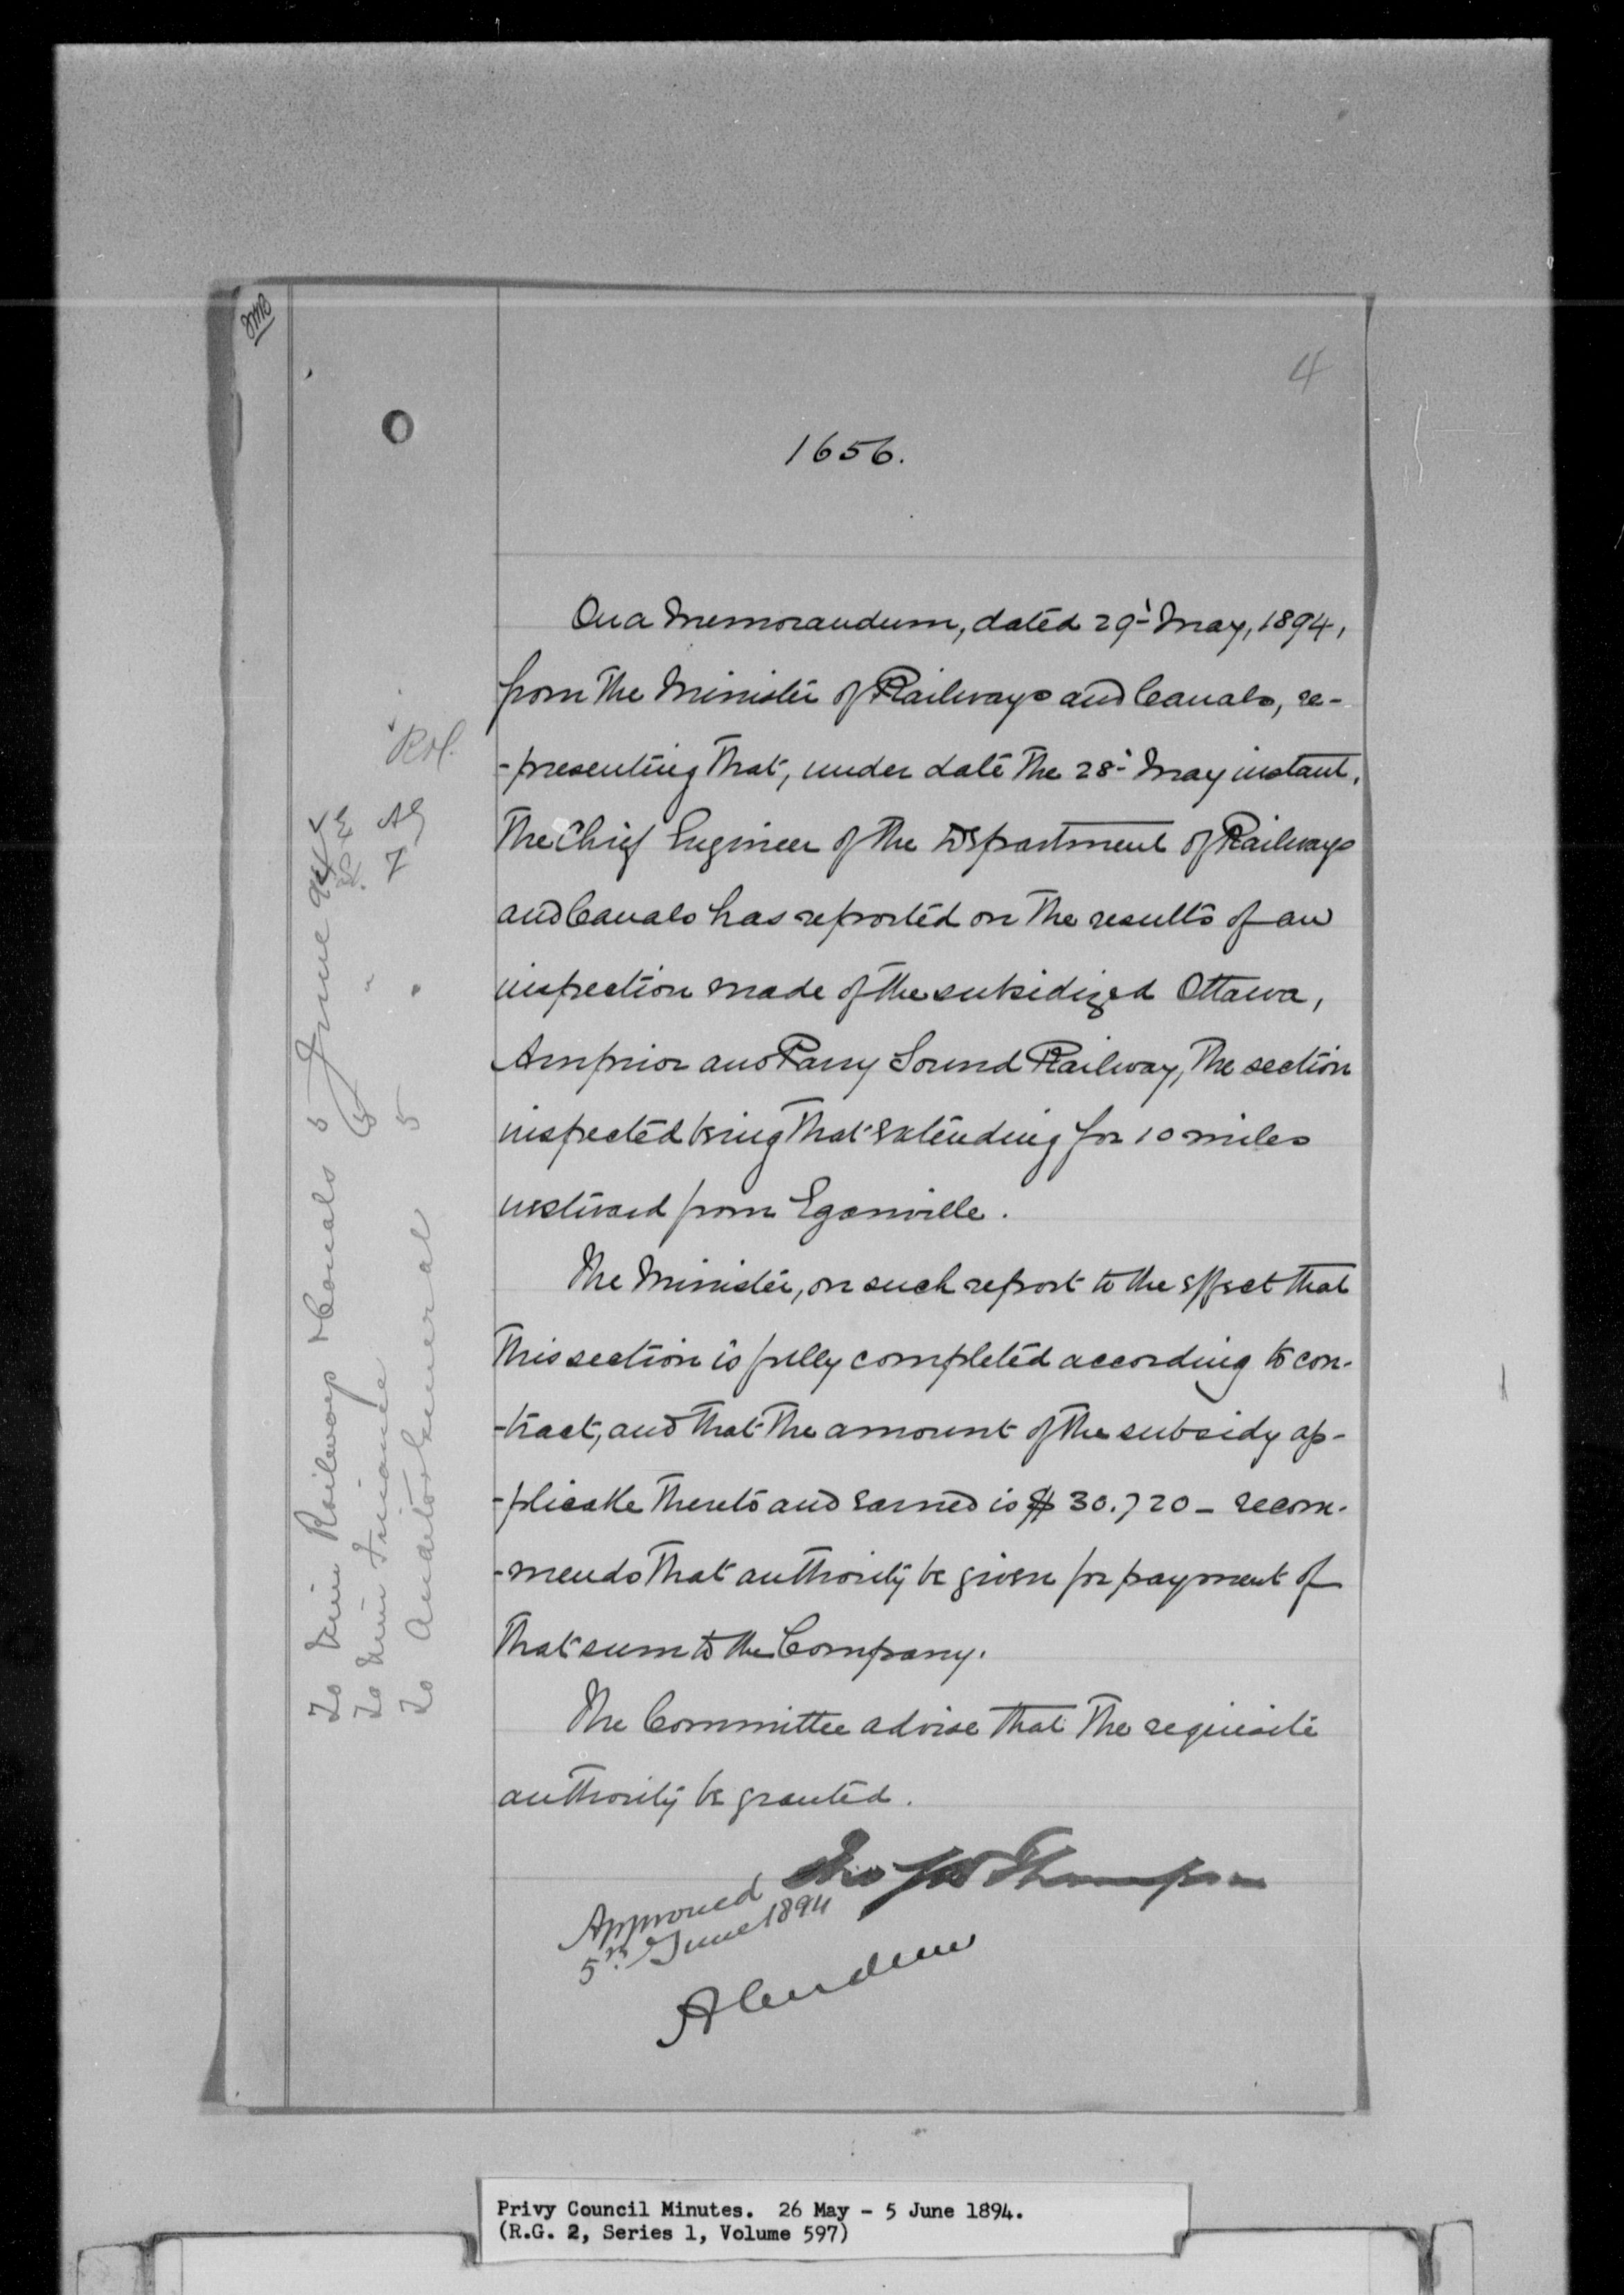 4
1656.
On a Memorandum, dated 29th May, 1894,
from the Minister of Railways and Canals, re-
-presenting that, under date the 28th May instant,
the Chief Engineer of the Department of Railways
and Canals has reported on the results of an
inspection made of the subsidized Ottawa,
Arnprior and Parry Sound Railway, the section
inspected being that extending for 10 miles
westward from Eganville.
The Minister, on such report to the effect that
this section is fully completed according to con-
-tract, and that the amount of the subsidy ap-
-plicable thereto and earned is $30,720 – recom-
-mends that authority be given for payment of
that sum to the Company.
The Committee advise that the requisite
authority be granted.
Jno S D Thompson
Approved
5th June 1894
Aberdeen
To Min Railways & Canals 5 June 94
To Min Finance 6 "
To Auditor General 5 "
R&C
AG
F
Privy Council Minutes. 26 May - 5 June 1894.
(R.G. 2, Series 1, Volume 597)